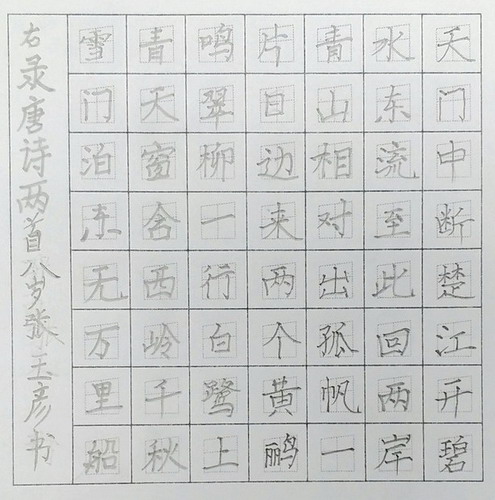 天门中断楚江开碧
水东流至此回两岸
青山相对出孤帆一
片日边来两个黄鹂
鸣翠柳一行白鹭上
青天窗含西岭千秋
雪门泊东无万里船
右录唐诗两首八岁张玉彦书